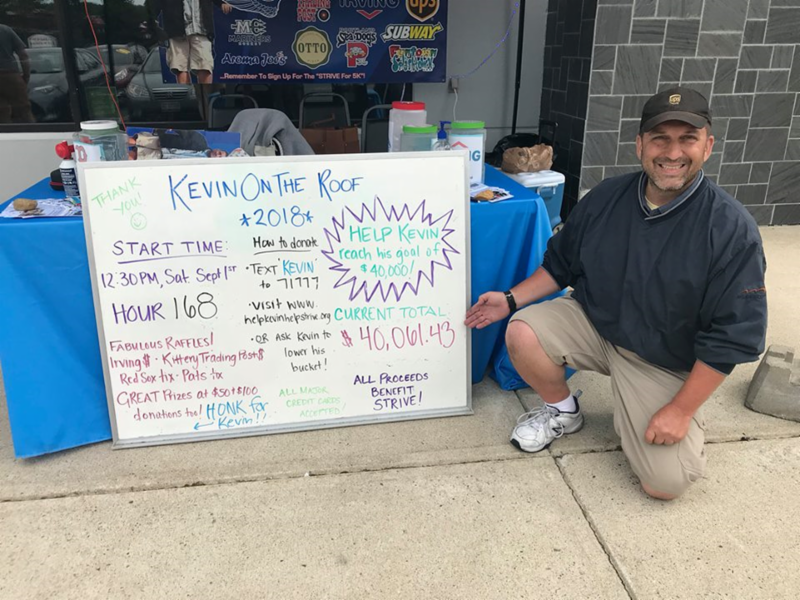 IRVING
UPS
MC
OTTO
SeaDogs
SUBWAY
Aroma Joe's
...Remember To Sign Up For The "STRIVE For 5K"!
THANK
YOU!
KEVIN ON THE ROOF
*2018*
START TIME:
12:30PM, Sat. Sept 1st
HOUR 168
FABULOUS RAFFLES!
Irving $ · Kittery Trading Post $
Red Sox tix · Pats tix
GREAT Prizes at $50 + $100
donations too!
HONK for
Kevin!!
How to donate
· TEXT "KEVIN"
to 71777
· VISIT WWW.
helpkevinhelpstrive.org
· OR ASK Kevin to
lower his
bucket!
ALL MAJOR
CREDIT CARDS
ACCEPTED!
HELP KEVIN
reach his goal of
$40,000!
CURRENT TOTAL
$40,061.43
ALL PROCEEDS
BENEFIT
STRIVE!
ups